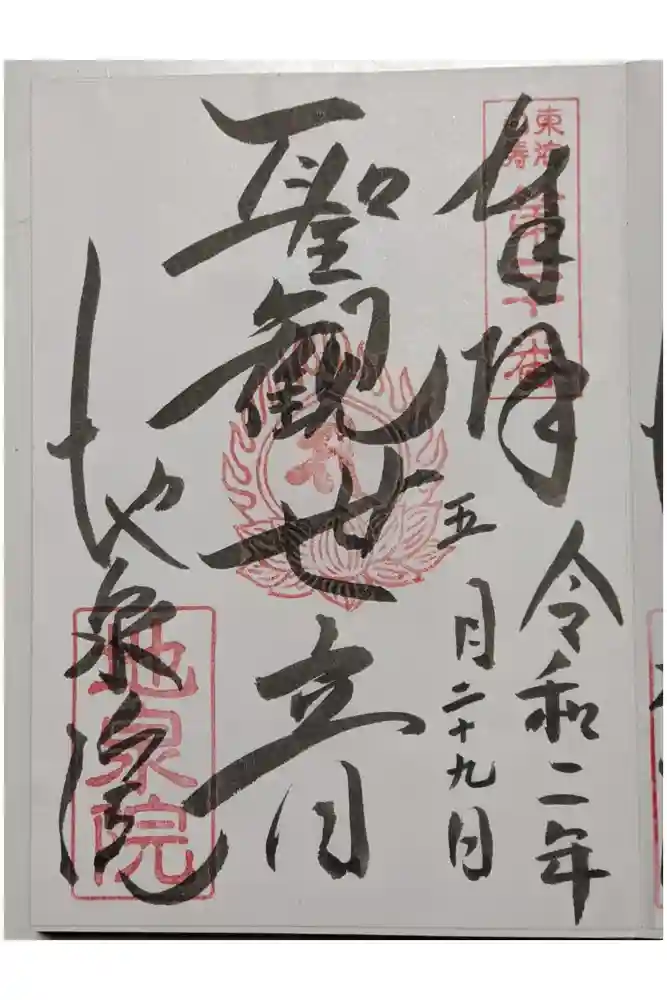 奉拝
令和二年
五月二十九日
聖観世音
地泉院
東海
地泉院